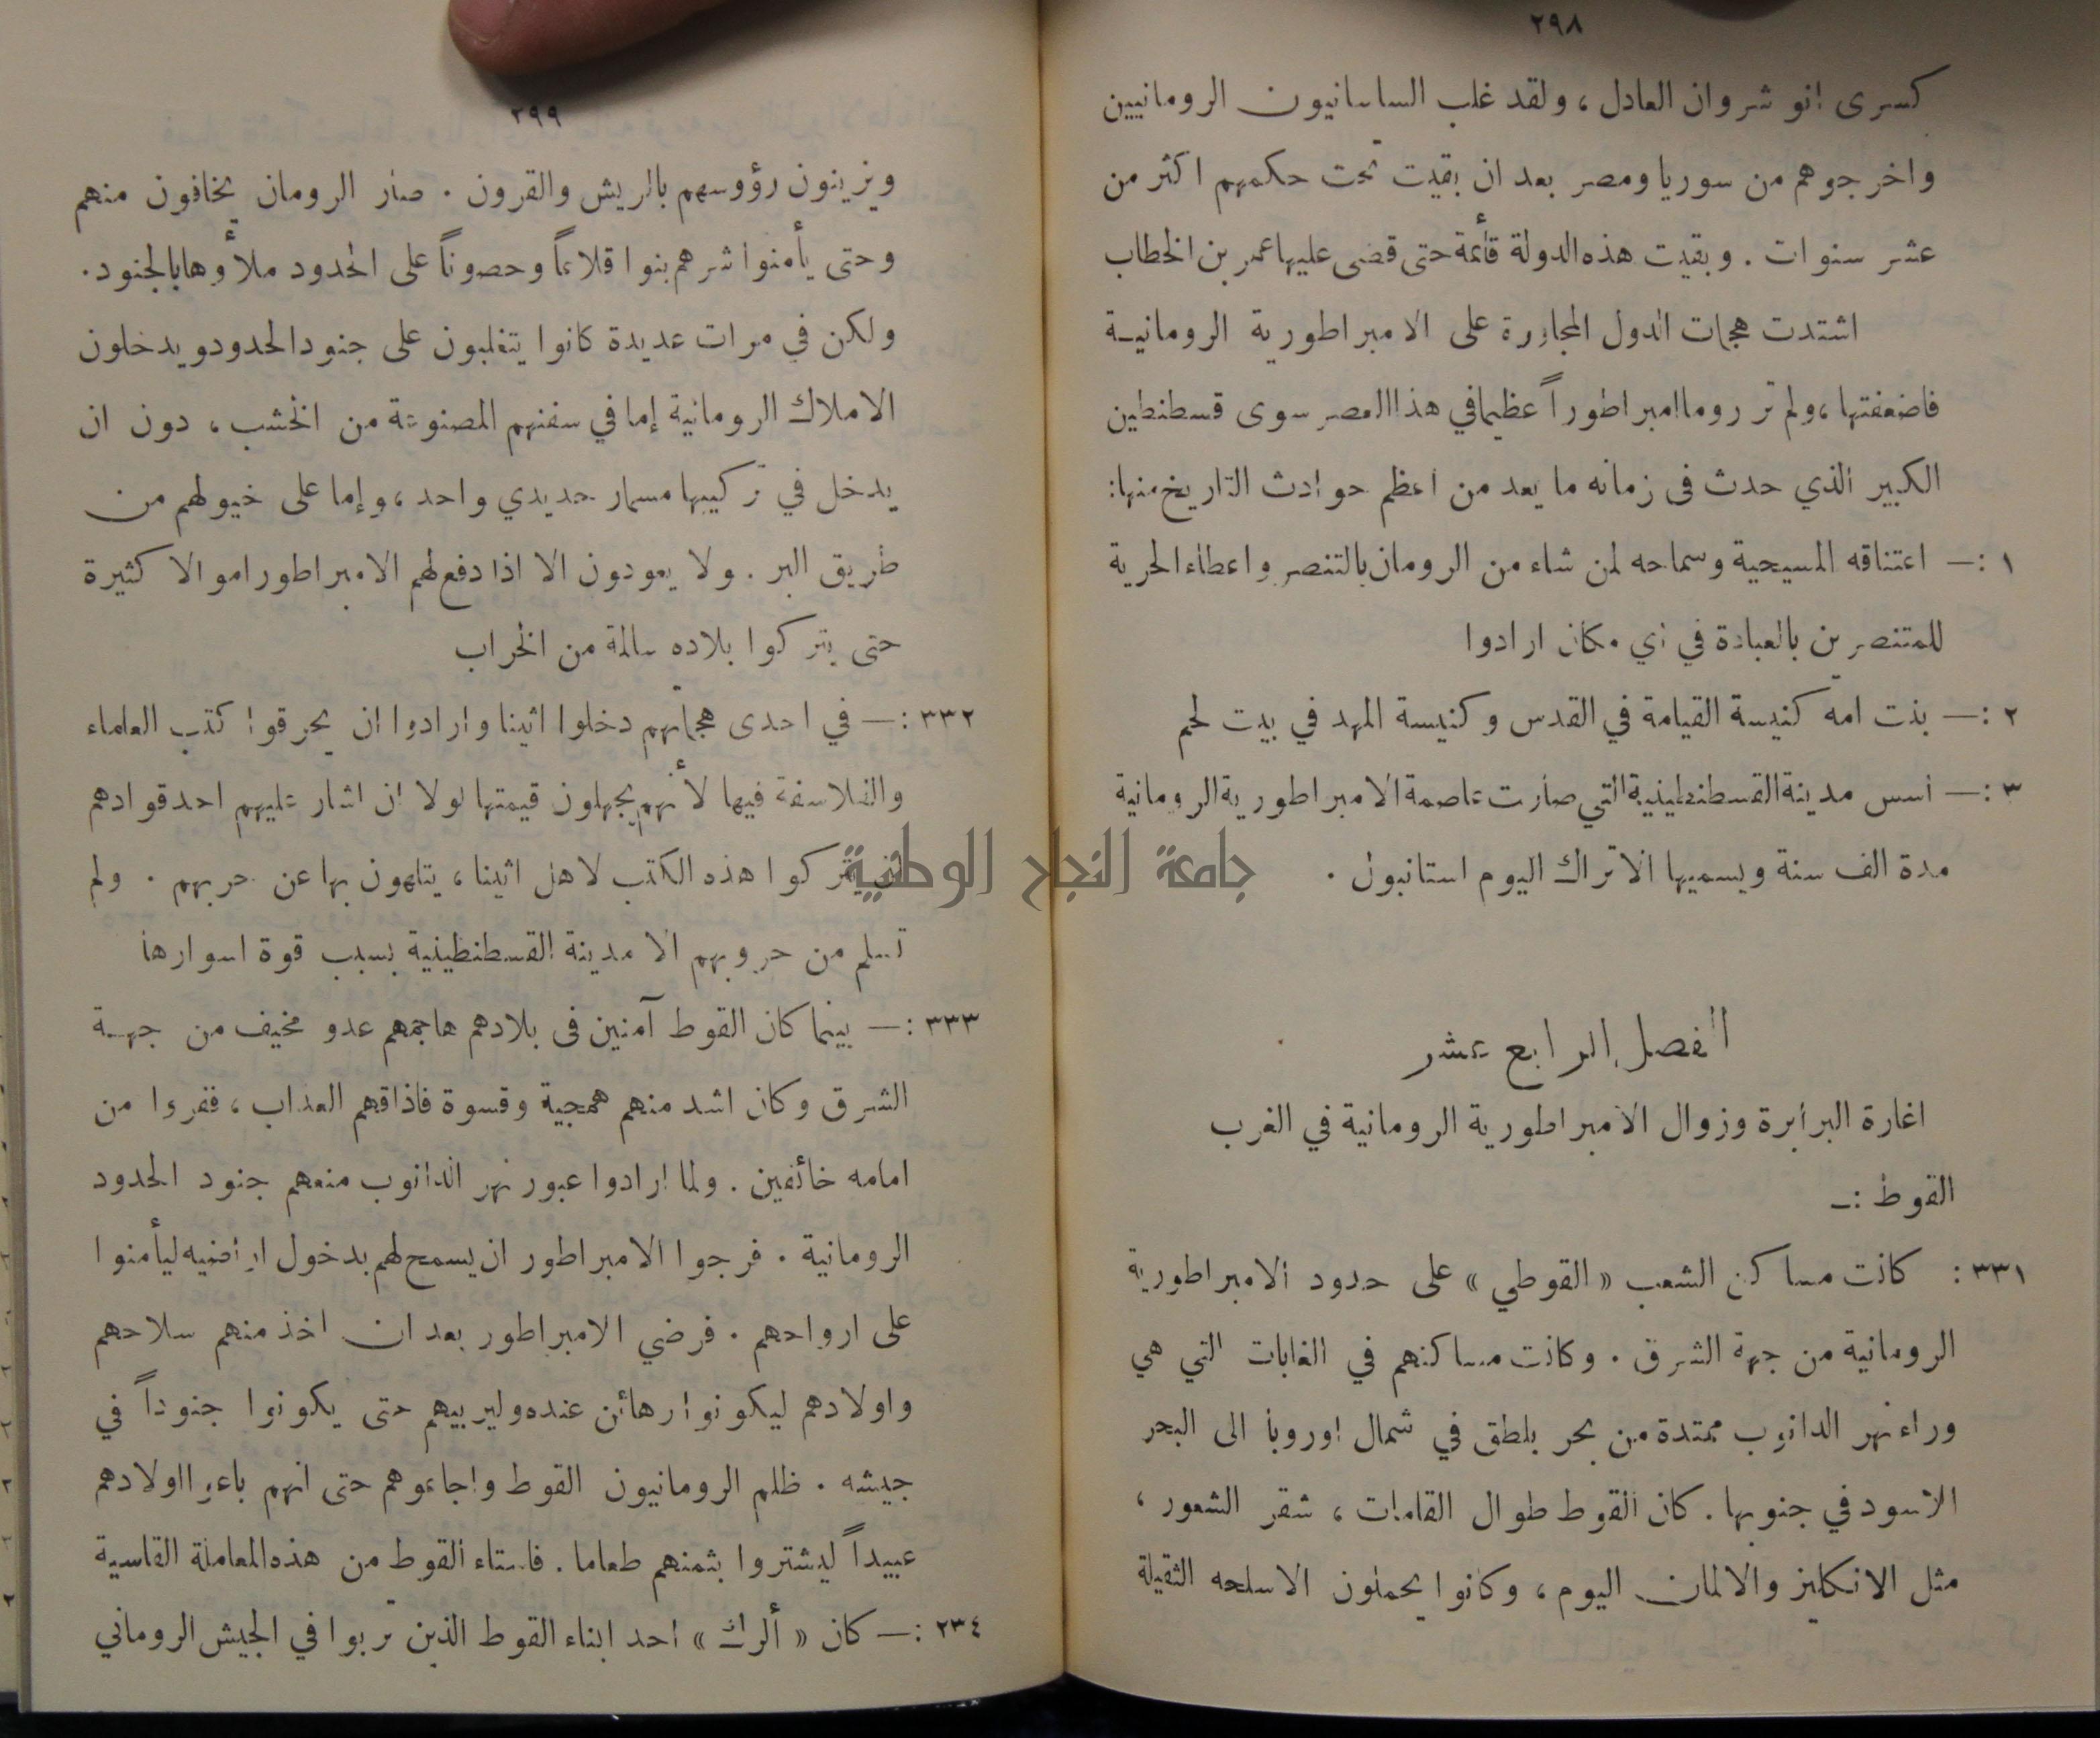 ٢٩٨
كسرى انو شروان العادل ، ولقد غلب الساسانيون الرومانيين
واخرجوهم من سوريا ومصر بعد ان بقيت تحت حكمهم اكثر من
عشر سنوات . وبقيت هذه الدولة قائمة حتى قضى عليها عمر بن الخطاب
اشتدت هجمات الدول المجاورة على الامبراطورية الرومانية
فاضعفتها ، ولم تر روما امبراطوراً عظيما في هذا العصر سوى قسطنطين
الكبير الذي حدث فى زمانه ما يعد من اعظم حوادث التاريخ منها :
١ :— اعتناقه المسيحية وسماحه لمن شاء من الرومان بالتنصر واعطاء الحرية
للمتنصرين بالعبادة في اي مكان ارادوا
٢ :— بنت امه كنيسة القيامة في القدس وكنيسة المهد في بيت لحم
٣ :— أسس مدينة القسطنطينية التي صارت عاصمة الامبراطورية الرومانية
مدة الف سنة ويسميها الاتراك اليوم استانبول .
الفصل الرابع عشر
اغارة البرابرة وزوال الامبراطورية الرومانية في الغرب
القوط :—
٣٣١ : كانت مساكن الشعب « القوطي » على حدود الامبراطورية
الرومانية من جهة الشرق . وكانت مساكنهم في الغابات التي هي
وراء نهر الدانوب ممتدة من بحر بلطق في شمال اوروبا الى البحر
الاسود في جنوبها . كان القوط طوال القامات ، شقر الشعور ،
مثل الانكليز والالمان اليوم ، وكانوا يحملون الاسلحه الثقيلة
٢٩٩
ويزينون رؤوسهم بالريش والقرون . صار الرومان يخافون منهم
وحتى يأمنوا شرهم بنوا قلاعاً وحصوناً على الحدود ملأوها بالجنود .
ولكن في مرات عديدة كانوا يتغلبون على جنود الحدود ويدخلون
الاملاك الرومانية إما في سفنهم المصنوعة من الخشب ، دون ان
يدخل في تركيبها مسمار حديدي واحد ، وإما على خيولهم من
طريق البر . ولا يعودون الا اذا دفع لهم الامبراطور اموالا كثيرة
حتى يتركوا بلاده سالمة من الخراب
٣٣٢ :— في احدى هجماتهم دخلوا اثينا وارادوا ان يحرقوا كتب العلماء
والفلاسفة فيها لأنهم يجهلون قيمتها لولا ان اشار عليهم احد قوادهم
ان يتركوا هذه الكتب لاهل اثينا ، يتلهون بها عن حربهم . ولم
تسلم من حروبهم الا مدينة القسطنطينية بسبب قوة اسوارها
٣٣٣ :— بينما كان القوط آمنين فى بلادهم هاجمهم عدو مخيف من جهة
الشرق وكان اشد منهم همجية وقسوة فاذاقهم العذاب ، ففروا من
امامه خائفين . ولما ارادوا عبور نهر الدانوب منعهم جنود الحدود
الرومانية . فرجوا الامبراطور ان يسمح لهم بدخول اراضيه ليأمنوا
على ارواحهم . فرضي الامبراطور بعد ان اخذ منهم سلاحهم
واولادهم ليكونوا رهائن عنده وليربيهم حتى يكونوا جنوداً في
جيشه . ظلم الرومانيون القوط واجاعوهم حتى انهم باعوا اولادهم
عبيداً ليشتروا بثمنهم طعاما . فاستاء القوط من هذه المعاملة القاسية
٢٣٤ :— كان « ألرك » احد ابناء القوط الذين تربوا في الجيش الروماني
جامعة النجاح الوطنية